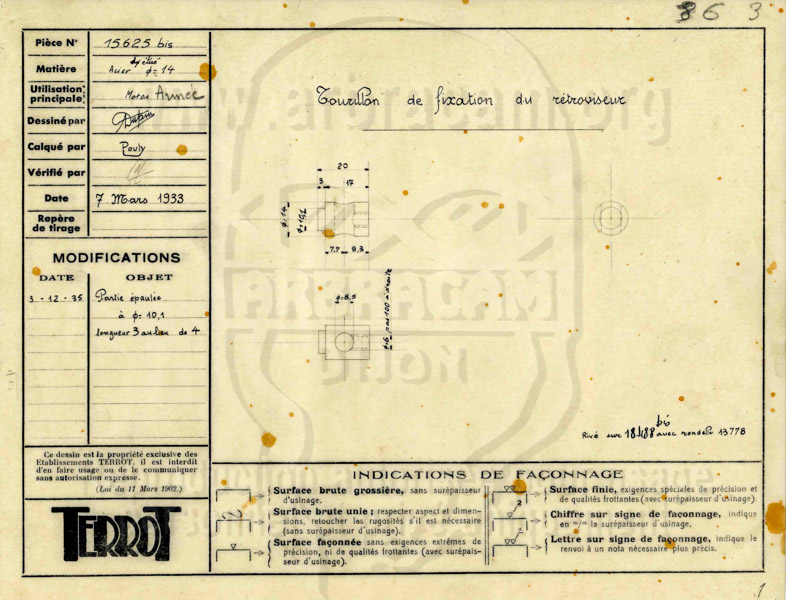 363
Pièce N° 15625 bis
étiré
Matière Acier ϕ= 14
Utilisation principale: Motos Armée
Dessiné par
Calqué par Pouly
Vérifié par
Date 7 Mars 1933
Repère de tirage
MODIFICATIONS
DATE OBJET
3-12-35 Partie épaulée
à ϕ= 10,1
longueur 3 au lieu de 4
Ce dessin est la propriété exclusive des
Etablissements TERROT, il est interdit
d'en faire usage ou de le communiquer
sans autorisation expresse.
(Loi du 11 Mars 1902.)
TERROT
Tourillon de fixation du rétroviseur
20
3 17
ϕ=14
7,7 9,3
ϕ=8,5
ϕ=6 pas 100 à droite
bis
Rivé sur 18488 avec rondelle 13778
INDICATIONS DE FAÇONNAGE
Surface brute grossière, sans surépaisseur
d'usinage.
Surface brute unie; respecter aspect et dimen-
sions, retoucher les rugosités s'il est nécessaire
(sans surépaisseur d'usinage).
Surface façonnée sans exigences extrêmes de
précision, ni de qualités frottantes (avec surépais-
seur d'usinage).
Surface finie, exigences spéciales de précision et
de qualités frottantes (avec surépaisseur d'usinage).
2
Chiffre sur signe de façonnage, indique
en m/m la surépaisseur d'usinage.
Lettre sur signe de façonnage, indique le
renvoi à un nota nécessaire plus précis.
1
www.arbracam.org
ARBRACAM
UNION